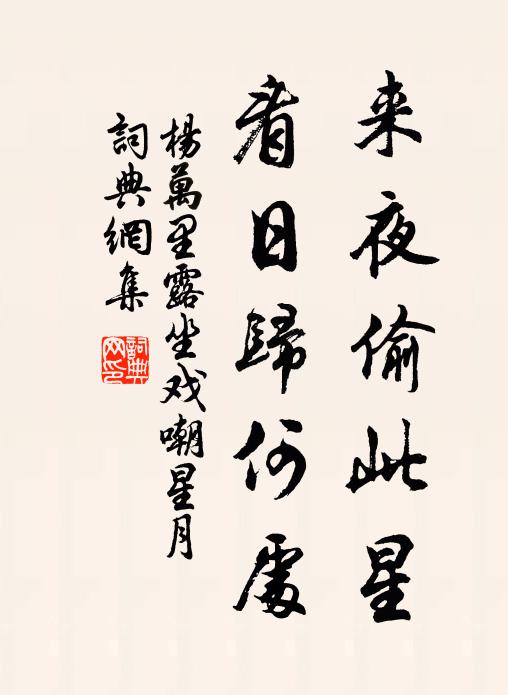 来夜偷此星
看日歸何處
楊萬里露坐戏嘲星月
詞典網集
詞典
网印